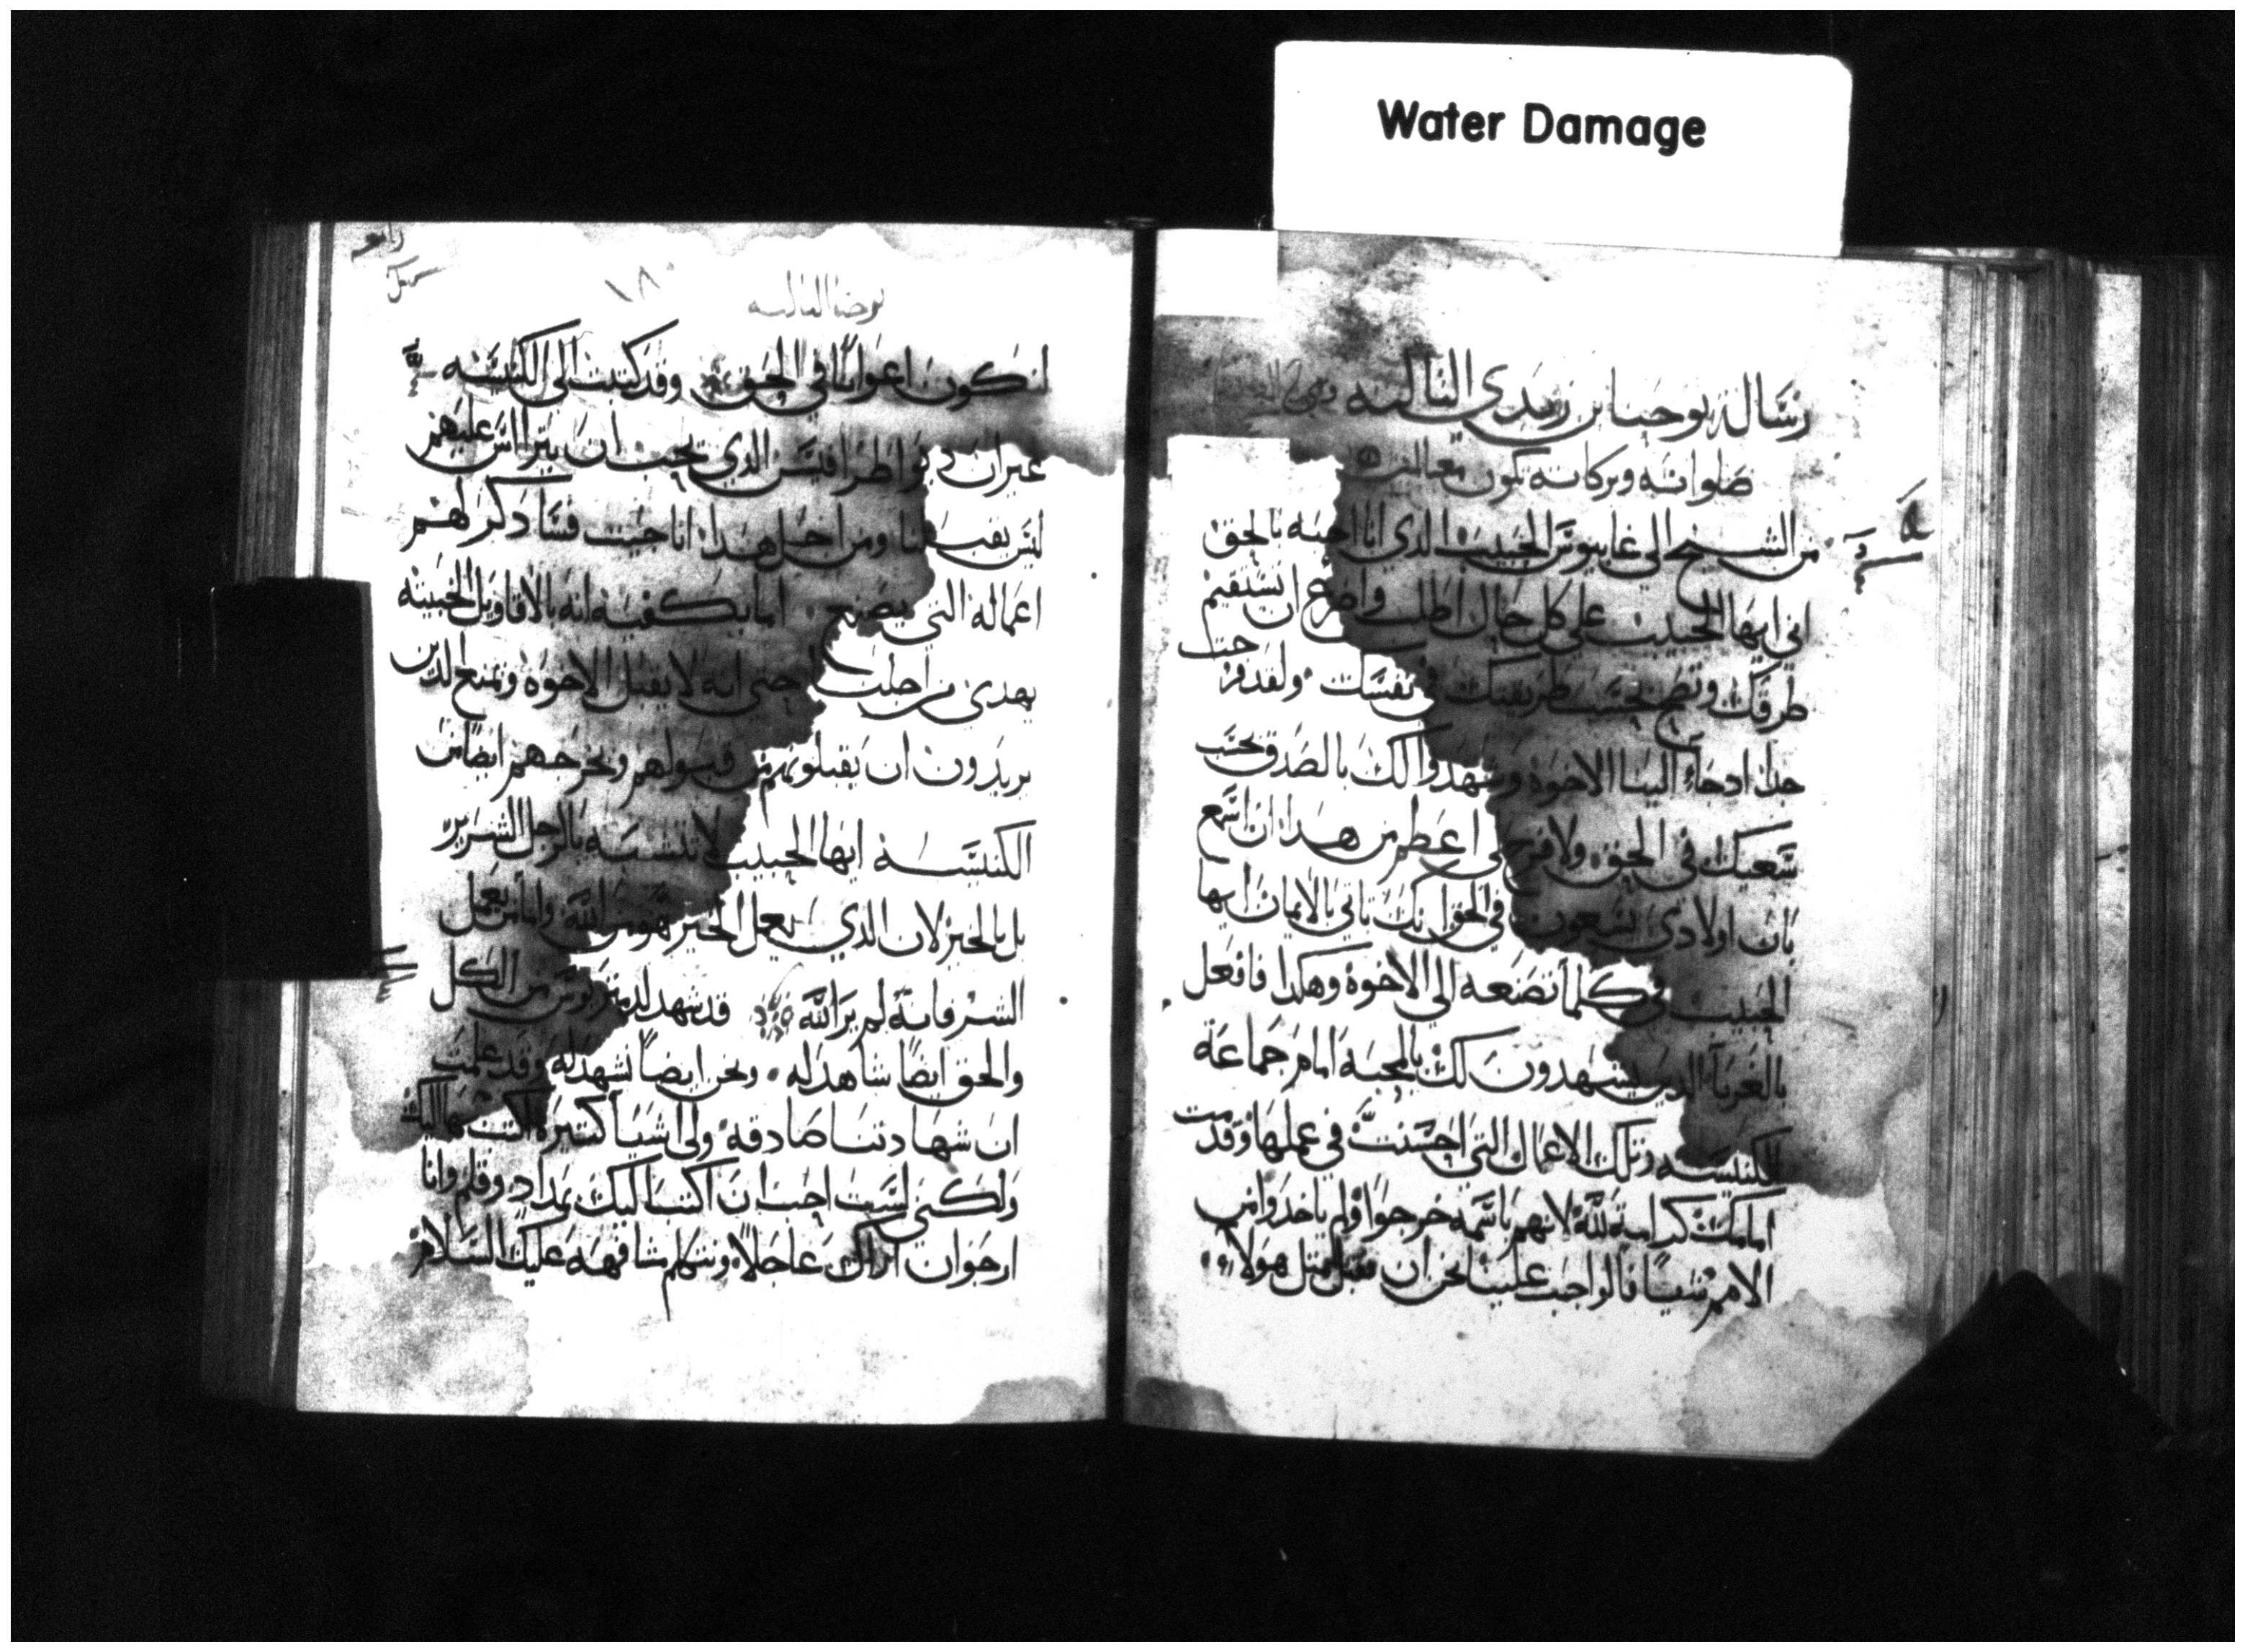 Water Damage
رسالة يوحنا بن زبدي الثالثة
صلواته وبركاته تكون معنا امين
من الشيخ الى غايوس الحبيب الذي انا احبه بالحق
اني ايها الحبيب على كل حال اطلب واضرع ان تستقيم
طرقك وتصح بحسب طريقتك في نفسك ولقد فرحت
جدا اذ جاء الينا الاخوة وشهدوا لك بالصدق بحسب
سعيك في الحق ولا فرح لي اعظم من هذا ان اسمع
بان اولادي يسعون في الحق انك تاتي بالايمان ايها
الحبيب في كلما تصنعه الى الاخوة وهكذا فافعل
بالغربا الذين يشهدون لك بالمحبة امام جماعة
الكنيسة وتلك الاعمال التي احسنت في عملها وقدمت
امامك كرامة لله لانهم باسمه خرجوا ولم ياخذوا من
الامم شيا فالواجب علينا نحن ان نقبل مثل هولاء
رابعه
١٨٠
يوحنا الثالثه
لنكون اعوانا في الحق وقد كتبت الى الكنيسه
غير ان ديوطرافيس الذي يحب ان يتراس عليهم
ليس يقبلنا ومن اجل هذا اذا جيت فسا ذكر لهم
اعماله التي يصنع اما يكفيه انه بالاقاويل الخبيثه
يهذي من اجلنا حتى انه لا يقبل الاخوة ويمنع الذين
يريدون ان يقبلوهم من قبولهم ويخرجهم ايضا من
الكنيسة ايها الحبيب لا تتشبه بالرجل الشرير
بل بالخير لان الذي يعمل الخير هو من الله واما من يعمل
الشر فانه لم ير الله قد شهد لديمتريوس من الكل
والحق ايضا شاهد له ونحن ايضا نشهد له وقد علمت
ان شهادتنا صادقه ولي اشيا كثيرة اكتب بها اليك
ولكني لست احب ان اكتب اليك بمداد وقلم وانا
ارجوا ان اراك عاجلا ونتكلم مشافهه عليك السلام